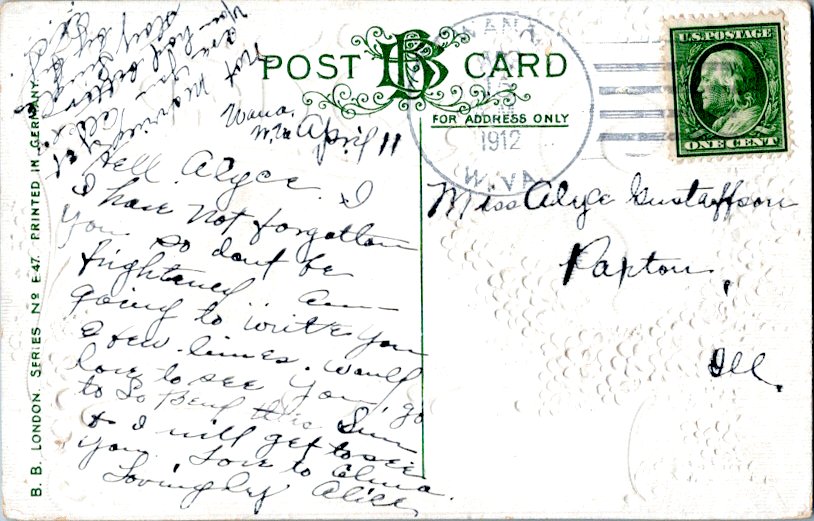 POST CARD
BB
FOR ADDRESS ONLY
U.S. POSTAGE
ONE CENT
WANA
1912
W. VA.
B. B. LONDON. SERIES Nº E47. PRINTED IN GERMANY.
Wana.
W. Va April 11
Hell. Alyce. I
I have not forgotten
you so dont be
frightened. am
going to write you
a few lines. Would
love to see you, go
to So Bend this Sum
& I will get to see
you. Love to Elma.
Lovingly Alice
Miss Alyce Gustaffson
Paxton,
Ill.
You had better
are you
not married yet